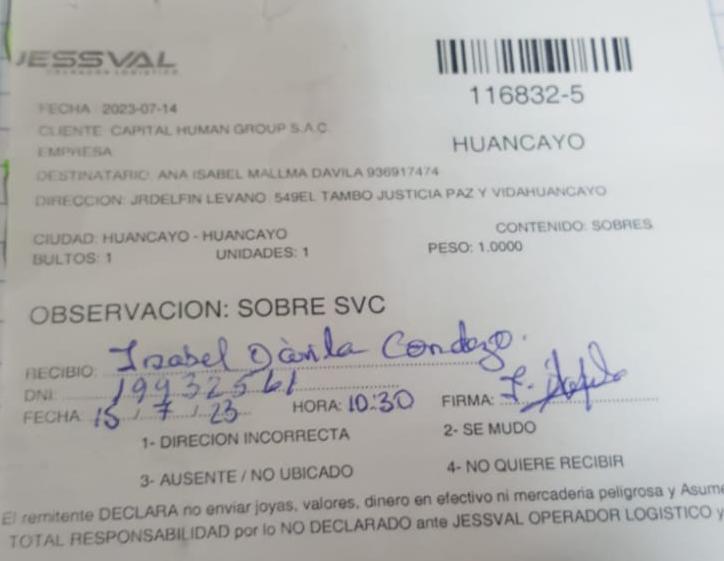 JESSVAL
OPERADOR LOGISTICO
116832-5
FECHA: 2023-07-14
CLIENTE: CAPITAL HUMAN GROUP S.A.C.
HUANCAYO
EMPRESA
DESTINATARIO: ANA ISABEL MALLMA DAVILA 936917474
DIRECCION: JRDELFIN LEVANO 549EL TAMBO JUSTICIA PAZ Y VIDAHUANCAYO
CIUDAD: HUANCAYO - HUANCAYO CONTENIDO: SOBRES
BULTOS: 1 UNIDADES: 1 PESO: 1.0000
OBSERVACION: SOBRE SVC
RECIBIO: Isabel Dàvila Condezo.
DNI: 19932561
FECHA: 15/7/23 HORA: 10:30 FIRMA:
1- DIRECION INCORRECTA 2- SE MUDO
3- AUSENTE / NO UBICADO 4- NO QUIERE RECIBIR
El remitente DECLARA no enviar joyas, valores, dinero en efectivo ni mercaderia peligrosa y Asume
TOTAL RESPONSABILIDAD por lo NO DECLARADO ante JESSVAL OPERADOR LOGISTICO y